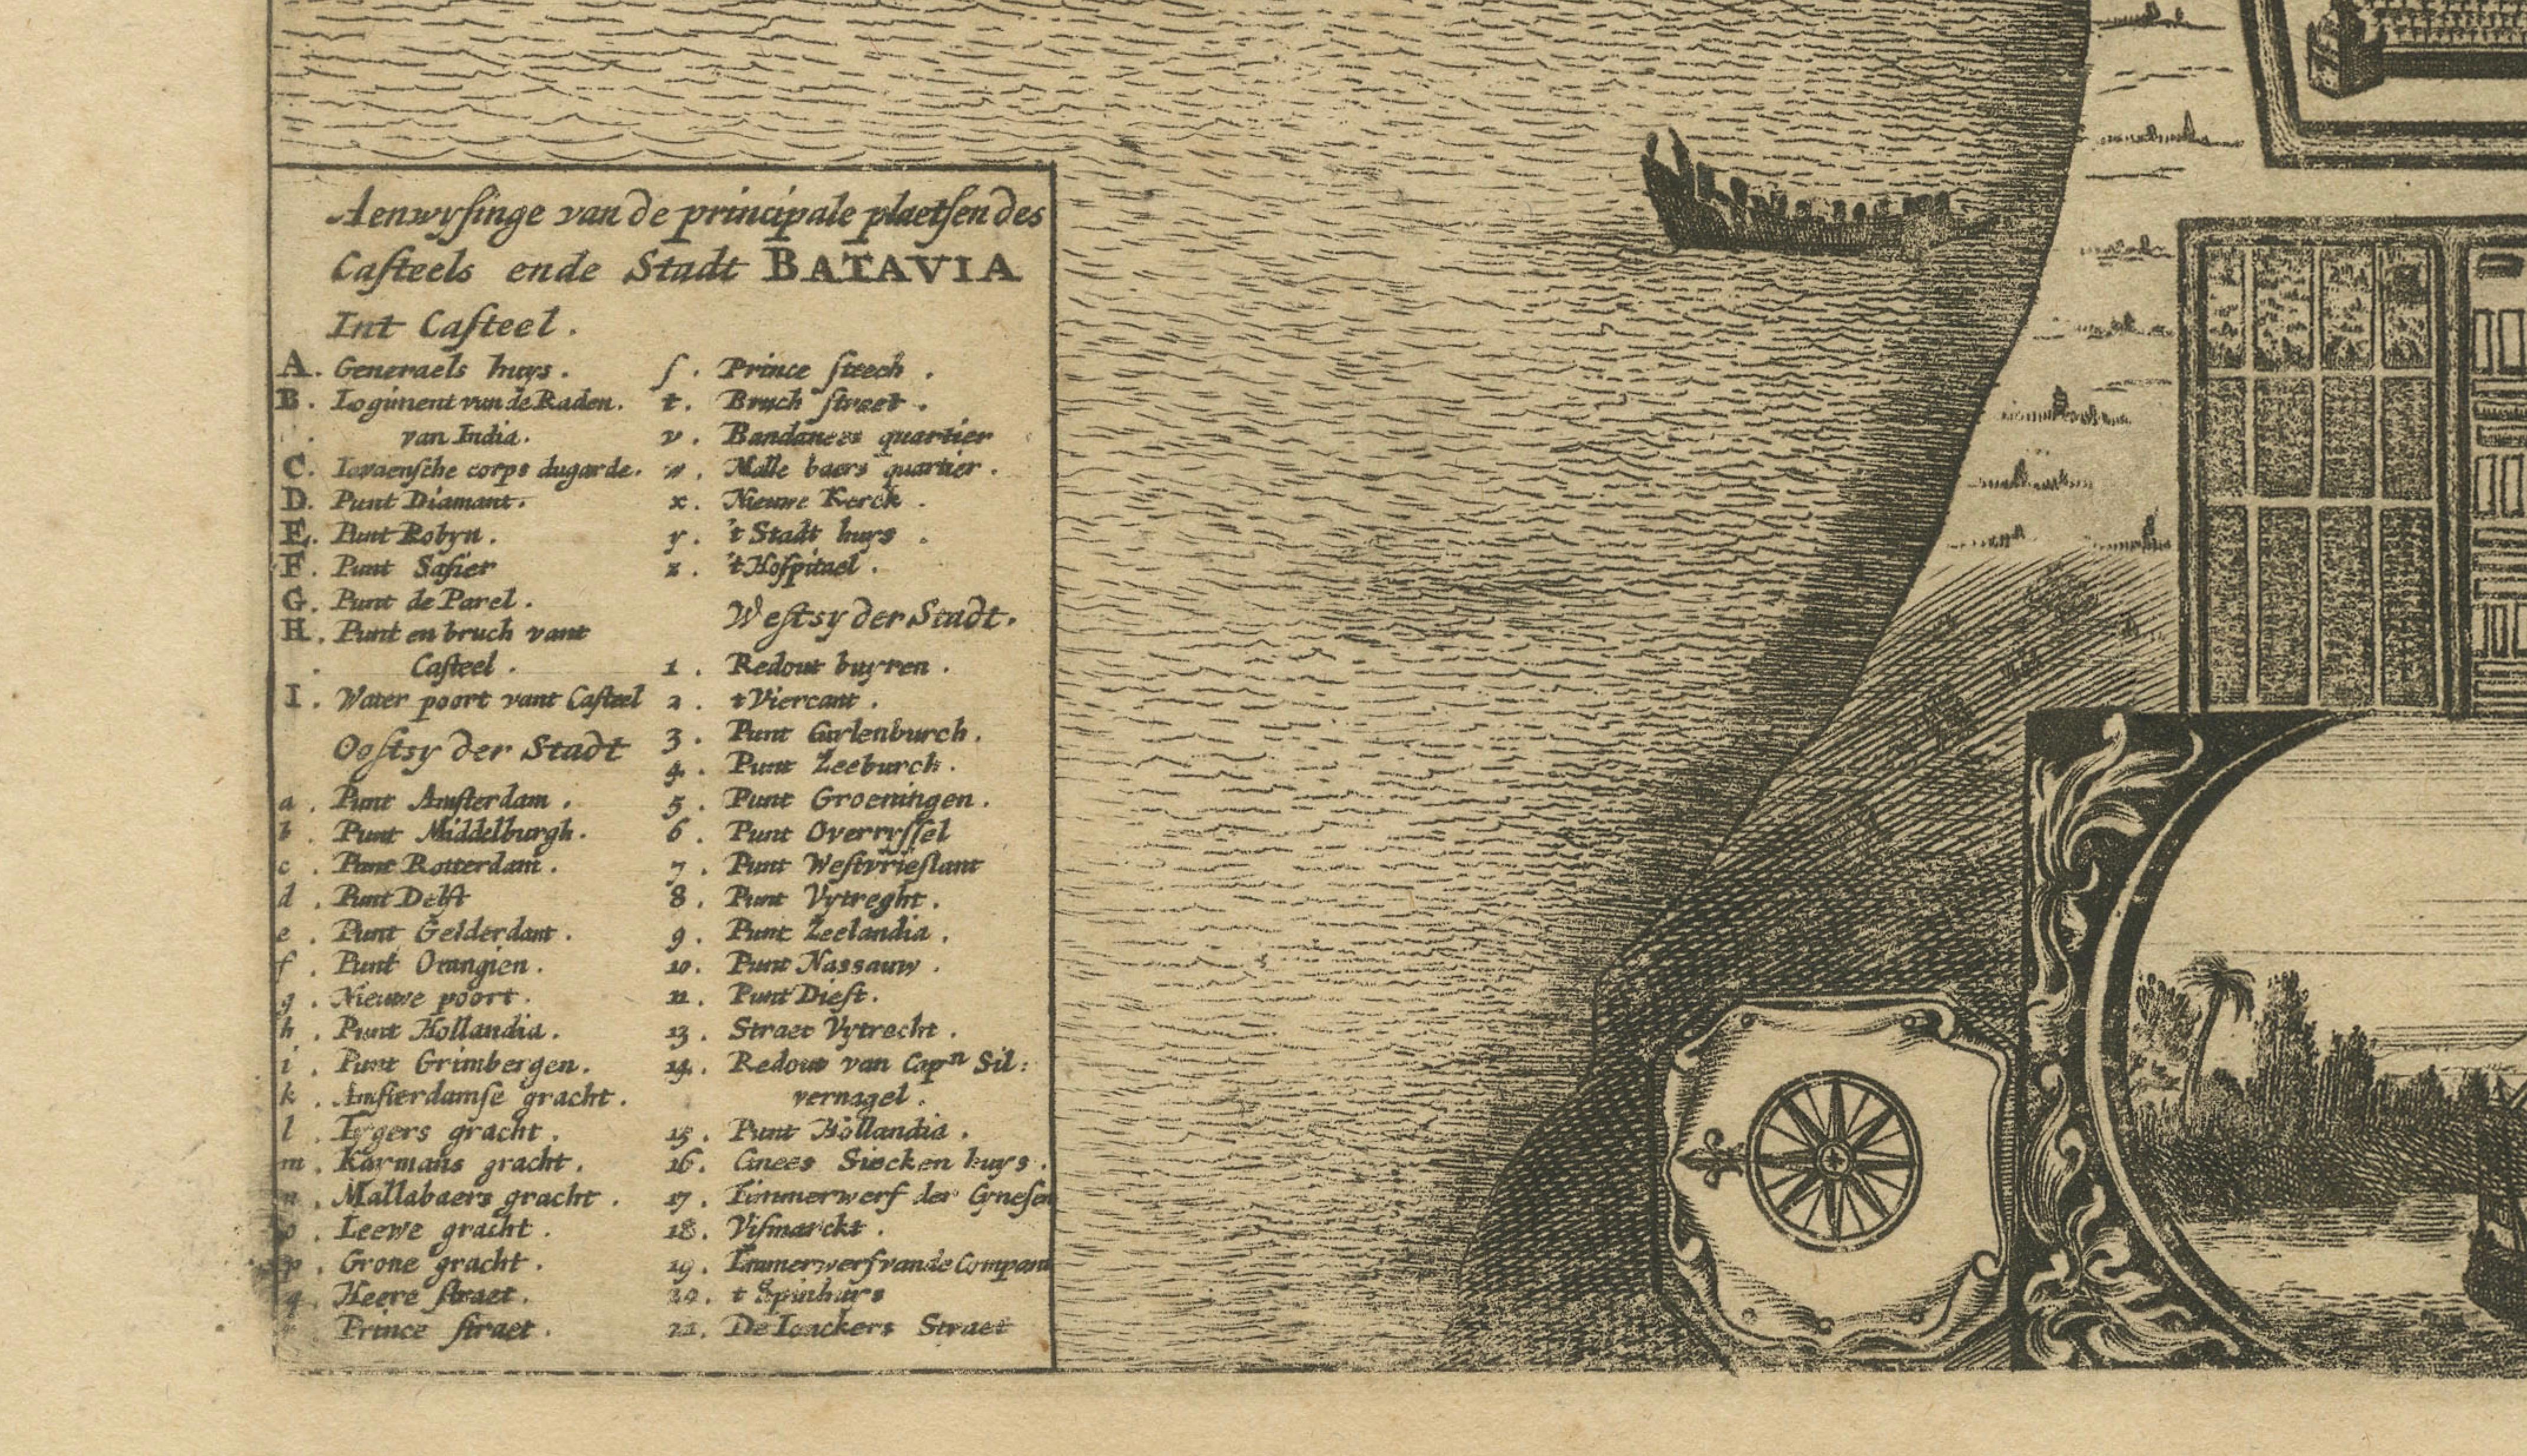 Aenwysinge van de principale plaetsen des
Casteels ende Stadt BATAVIA
Int Casteel.
A. Generaels huys.
B. Logiment van de Raden.
van India.
C. Iavaensche corps dugarde.
D. Punt Diamant.
E. Punt Robyn.
F. Punt Safier
G. Punt de Parel.
H. Punt en bruch vant
Casteel.
I. Water poort vant Casteel
Oostsy der Stadt
a. Punt Amsterdam.
b. Punt Middelburgh.
c. Punt Rotterdam.
d. Punt Delft
e. Punt Gelderdant.
f. Punt Orangien.
g. Nieuwe poort.
h. Punt Hollandia.
i. Punt Grimbergen.
k. Amsterdamse gracht.
l. Tygers gracht.
m. Kaymans gracht.
n. Mallabaers gracht.
o. Leewe gracht.
p. Grone gracht.
q. Heere straet.
r. Prince straet.
s. Prince steech.
t. Bruch straet.
v. Bandanees quartier
w. Malle baers quartier.
x. Nieuwe Kerck.
y. 't Stadt huys.
z. 't Hospitael.
Westsy der Stadt.
1. Redout buyren.
2. t Viercant.
3. Punt Cuylenburch.
4. Punt Zeeburch.
5. Punt Groeningen.
6. Punt Overryssel
7. Punt Westvrieslant
8. Punt Vytreght.
9. Punt Zeelandia.
10. Punt Nassauw.
11. Punt Diest.
13. Straet Vytrecht.
14. Redout van Capn Sil:
vernagel.
15. Punt Hollandia.
16. Cinees Siecken huys.
17. Timmerwerf der Cynesen
18. Vismarckt.
19. Timmerwerf vande Compani
20. t Spinhuys
21. De Ionckers Straet